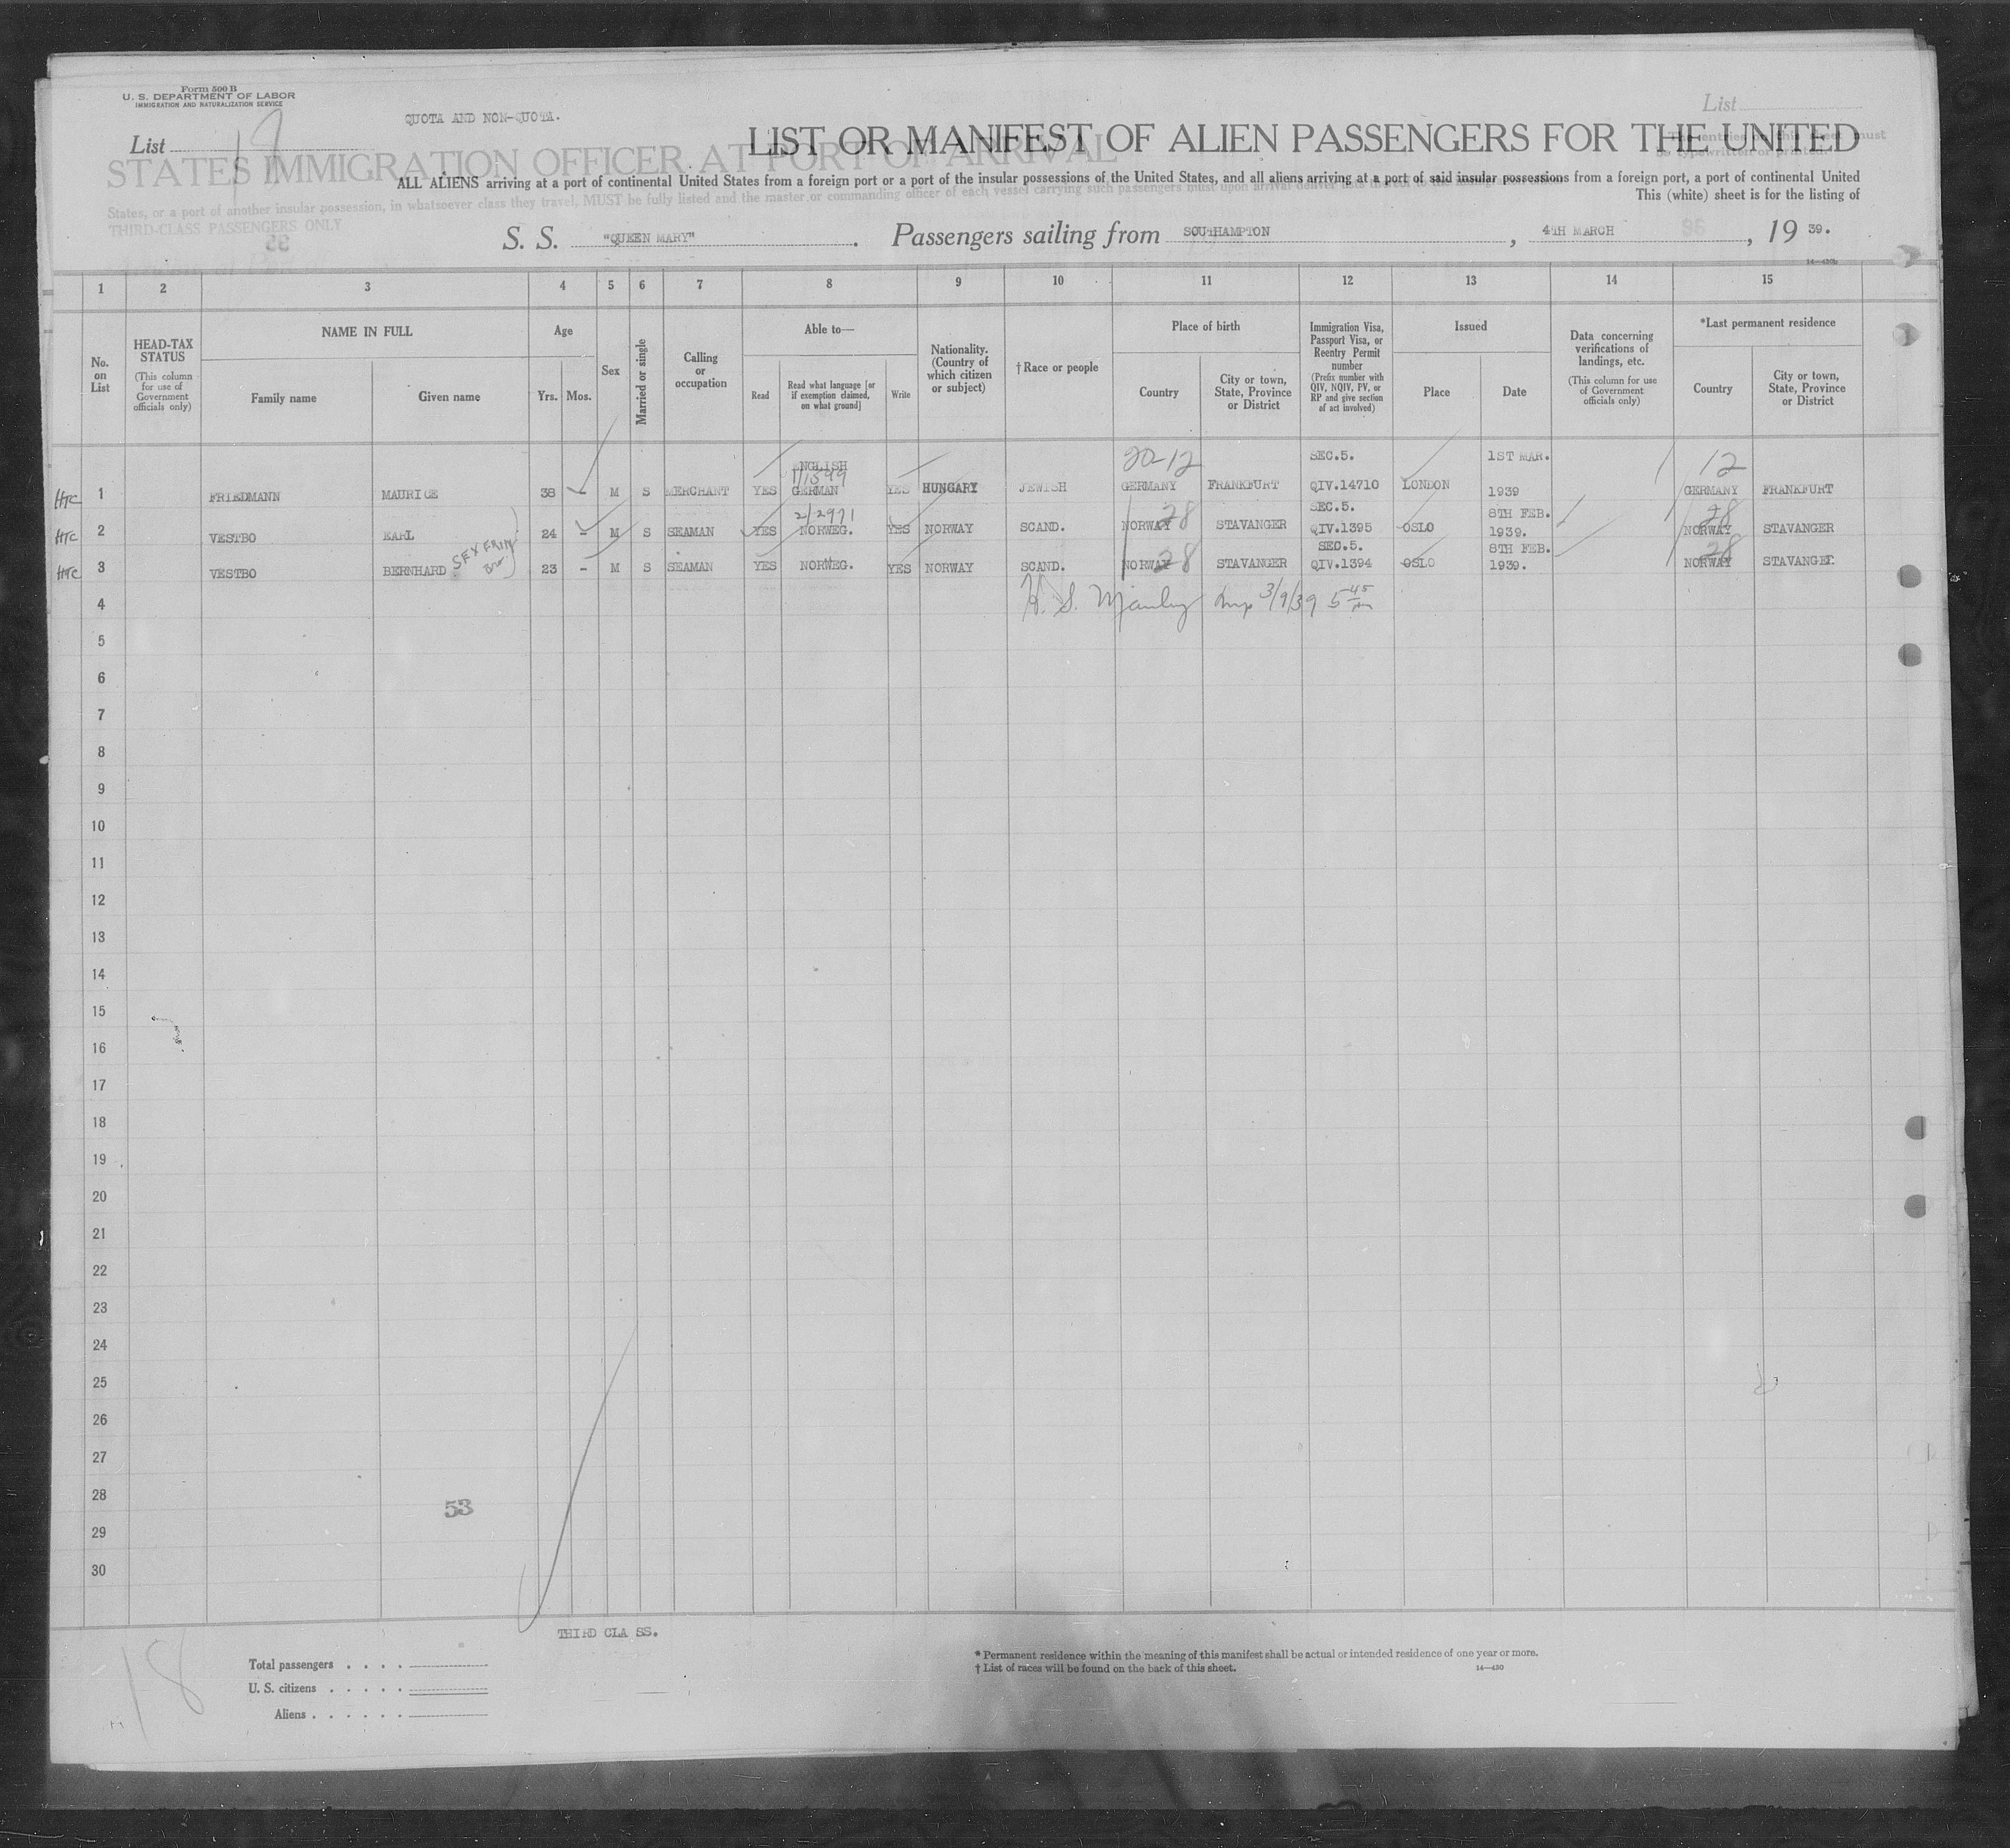 Form 500 B
U. S. DEPARTMENT OF LABOR
IMMIGRATION AND NATURALIZATION SERVICE
QUOTA AND NON-QUOTA.
List 18
List
LIST OR MANIFEST OF ALIEN PASSENGERS FOR THE UNITED
The entries on this sheet must
be typewritten or printed.
STATES IMMIGRATION OFFICER AT PORT OF ARRIVAL
ALL ALIENS arriving at a port of continental United States from a foreign port or a port of the insular possessions of the United States, and all aliens arriving at a port of said insular possessions from a foreign port, a port of continental United
States, or a port of another insular possession, in whatsoever class they travel, MUST be fully listed and the master or commanding officer of each vessel carrying such passengers must upon arrival deliver lists
This (white) sheet is for the listing of
THIRD-CLASS PASSENGERS ONLY
S. S. "QUEEN MARY" . Passengers sailing from SOUTHAMPTON , 4TH MARCH , 19 39.
1 2 3 4 5 6 7 8 9 10 11 12 13 14 15
No. on List
HEAD-TAX STATUS (This column for use of Government officials only)
NAME IN FULL
Family name Given name
Age
Yrs. Mos.
Sex
Married or single
Calling or occupation
Able to—
Read
Read what language [or if exemption claimed, on what ground]
Write
Nationality. (Country of which citizen or subject)
† Race or people
Place of birth
Country
City or town, State, Province or District
Immigration Visa, Passport Visa, or Reentry Permit number (Prefix number with QIV, NQIV, PV, or RP and give section of act involved)
Issued
Place Date
Data concerning verifications of landings, etc. (This column for use of Government officials only)
*Last permanent residence
Country
City or town, State, Province or District
ENGLISH 20-12 SEC.5. 1ST MAR. 12
HTC 1 FRIEDMANN MAURICE 38 M S MERCHANT YES GERMAN YES HUNGARY JEWISH GERMANY FRANKFURT QIV.14710 LONDON 1939 GERMANY FRANKFURT
2/2971 28 SEC.5. 8TH FEB. 28
HTC 2 VESTBO KARL 24 - M S SEAMAN YES NORWEG. YES NORWAY SCAND. NORWAY STAVANGER QIV.1395 OSLO 1939. NORWAY STAVANGER
SEC.5. 8TH FEB. 28
HTC 3 VESTBO BERNHARD 23 - M S SEAMAN YES NORWEG. YES NORWAY SCAND. NORWAY 28 STAVANGER QIV.1394 OSLO 1939. NORWAY STAVANGER.
4 H. S. Manley Insp 3/9/39 5 45 pm
5
6
7
8
9
10
11
12
13
14
15
16
17
18
19
20
21
22
23
24
25
26
27
28
53
29
30
THIRD CLASS.
18
Total passengers . . . .
U. S. citizens . . . . .
Aliens . . . . . .
* Permanent residence within the meaning of this manifest shall be actual or intended residence of one year or more.
† List of races will be found on the back of this sheet.
14—430